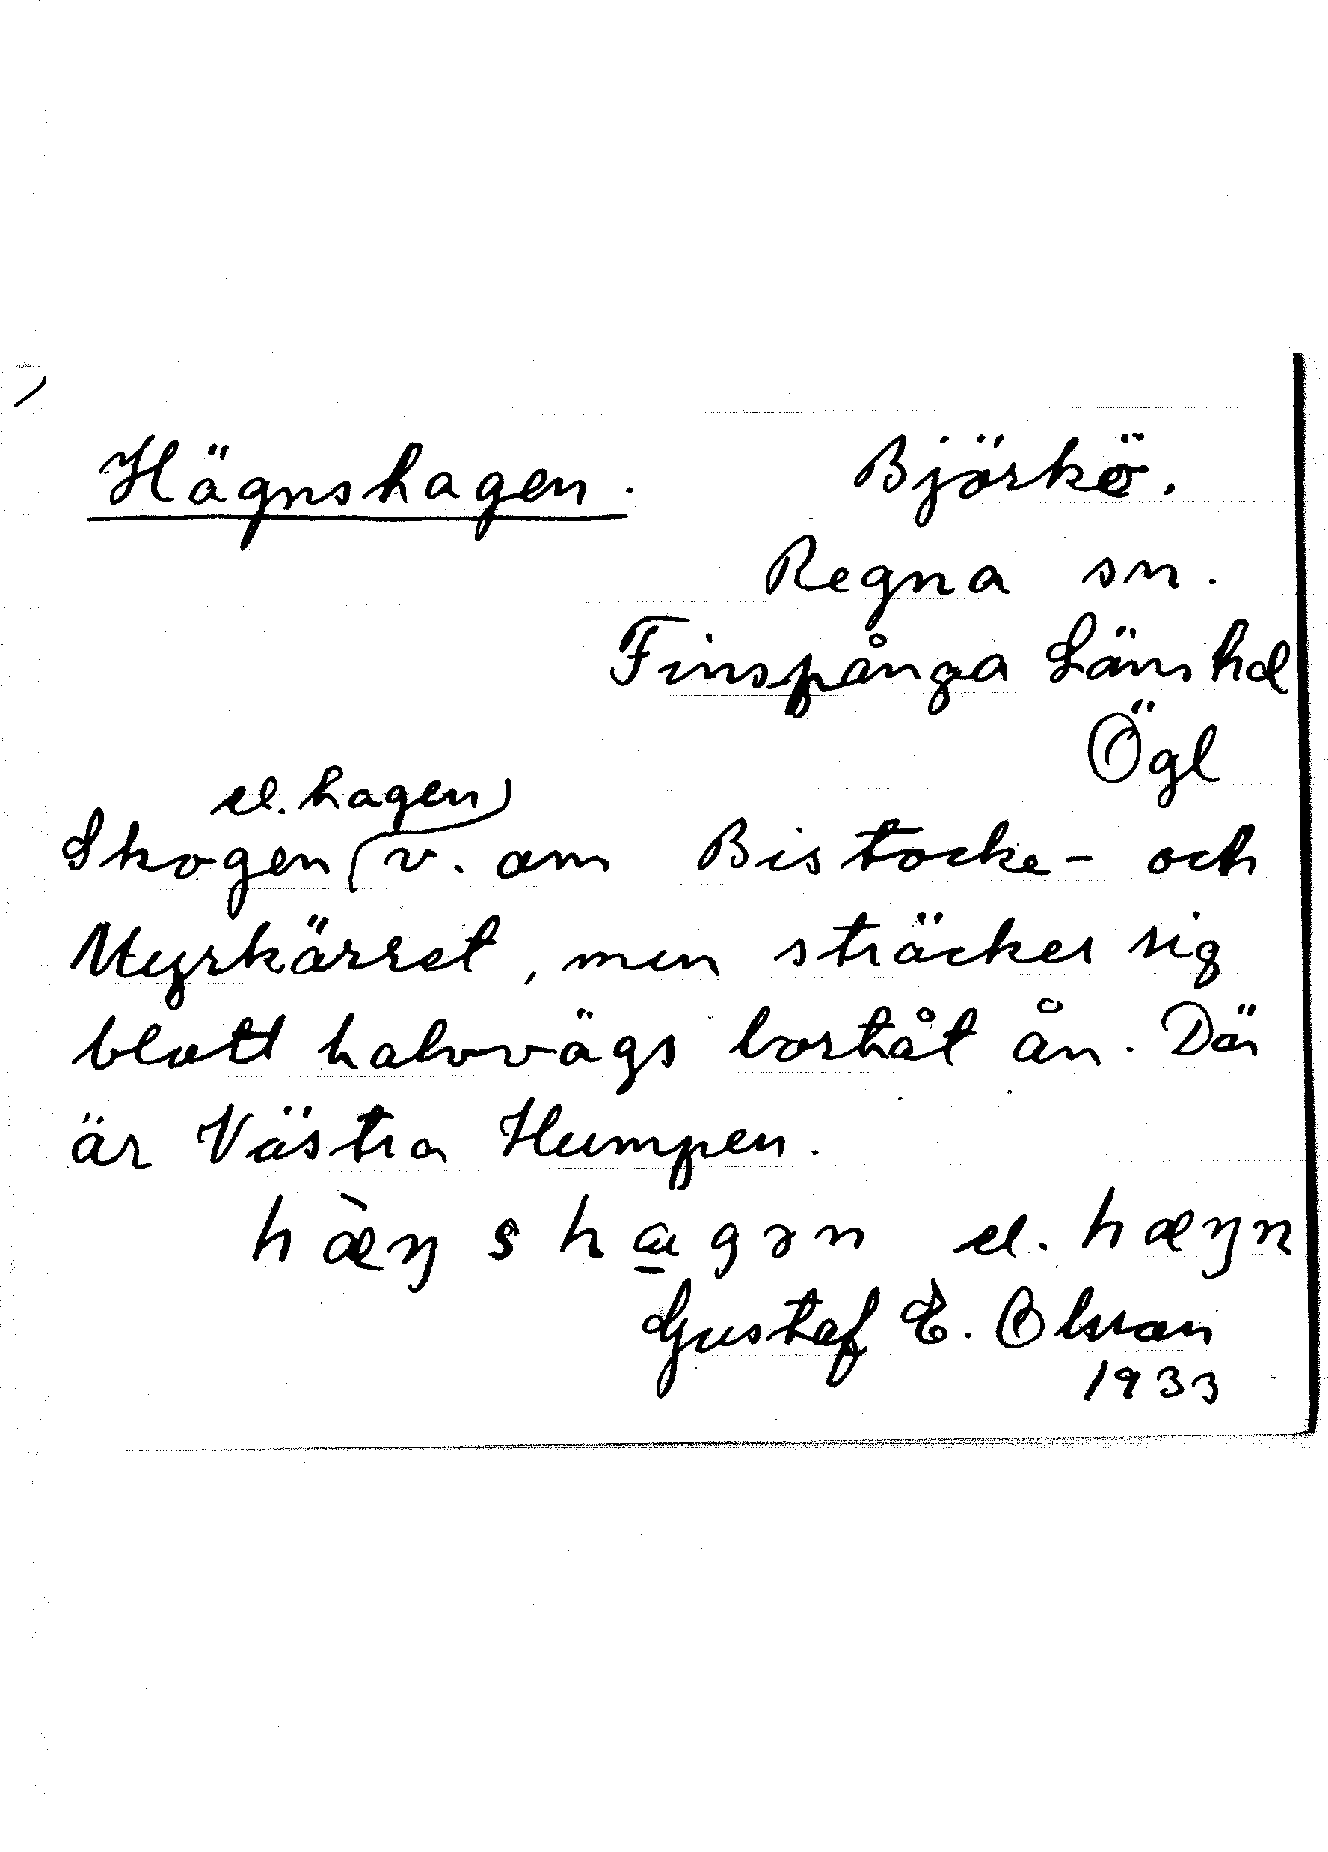 Hägnshagen. Björkö.
Regna sn.
Finspånga Läns hd
Ögl
el. hagen
Skogen v. om Bistocke- och
Myrkärret, men sträcker sig
blott halvvägs bortåt ån. Där
är Västra Humpen.
hæ̀ŋshagən el. hæŋn
Gustaf E. Olsson
1933